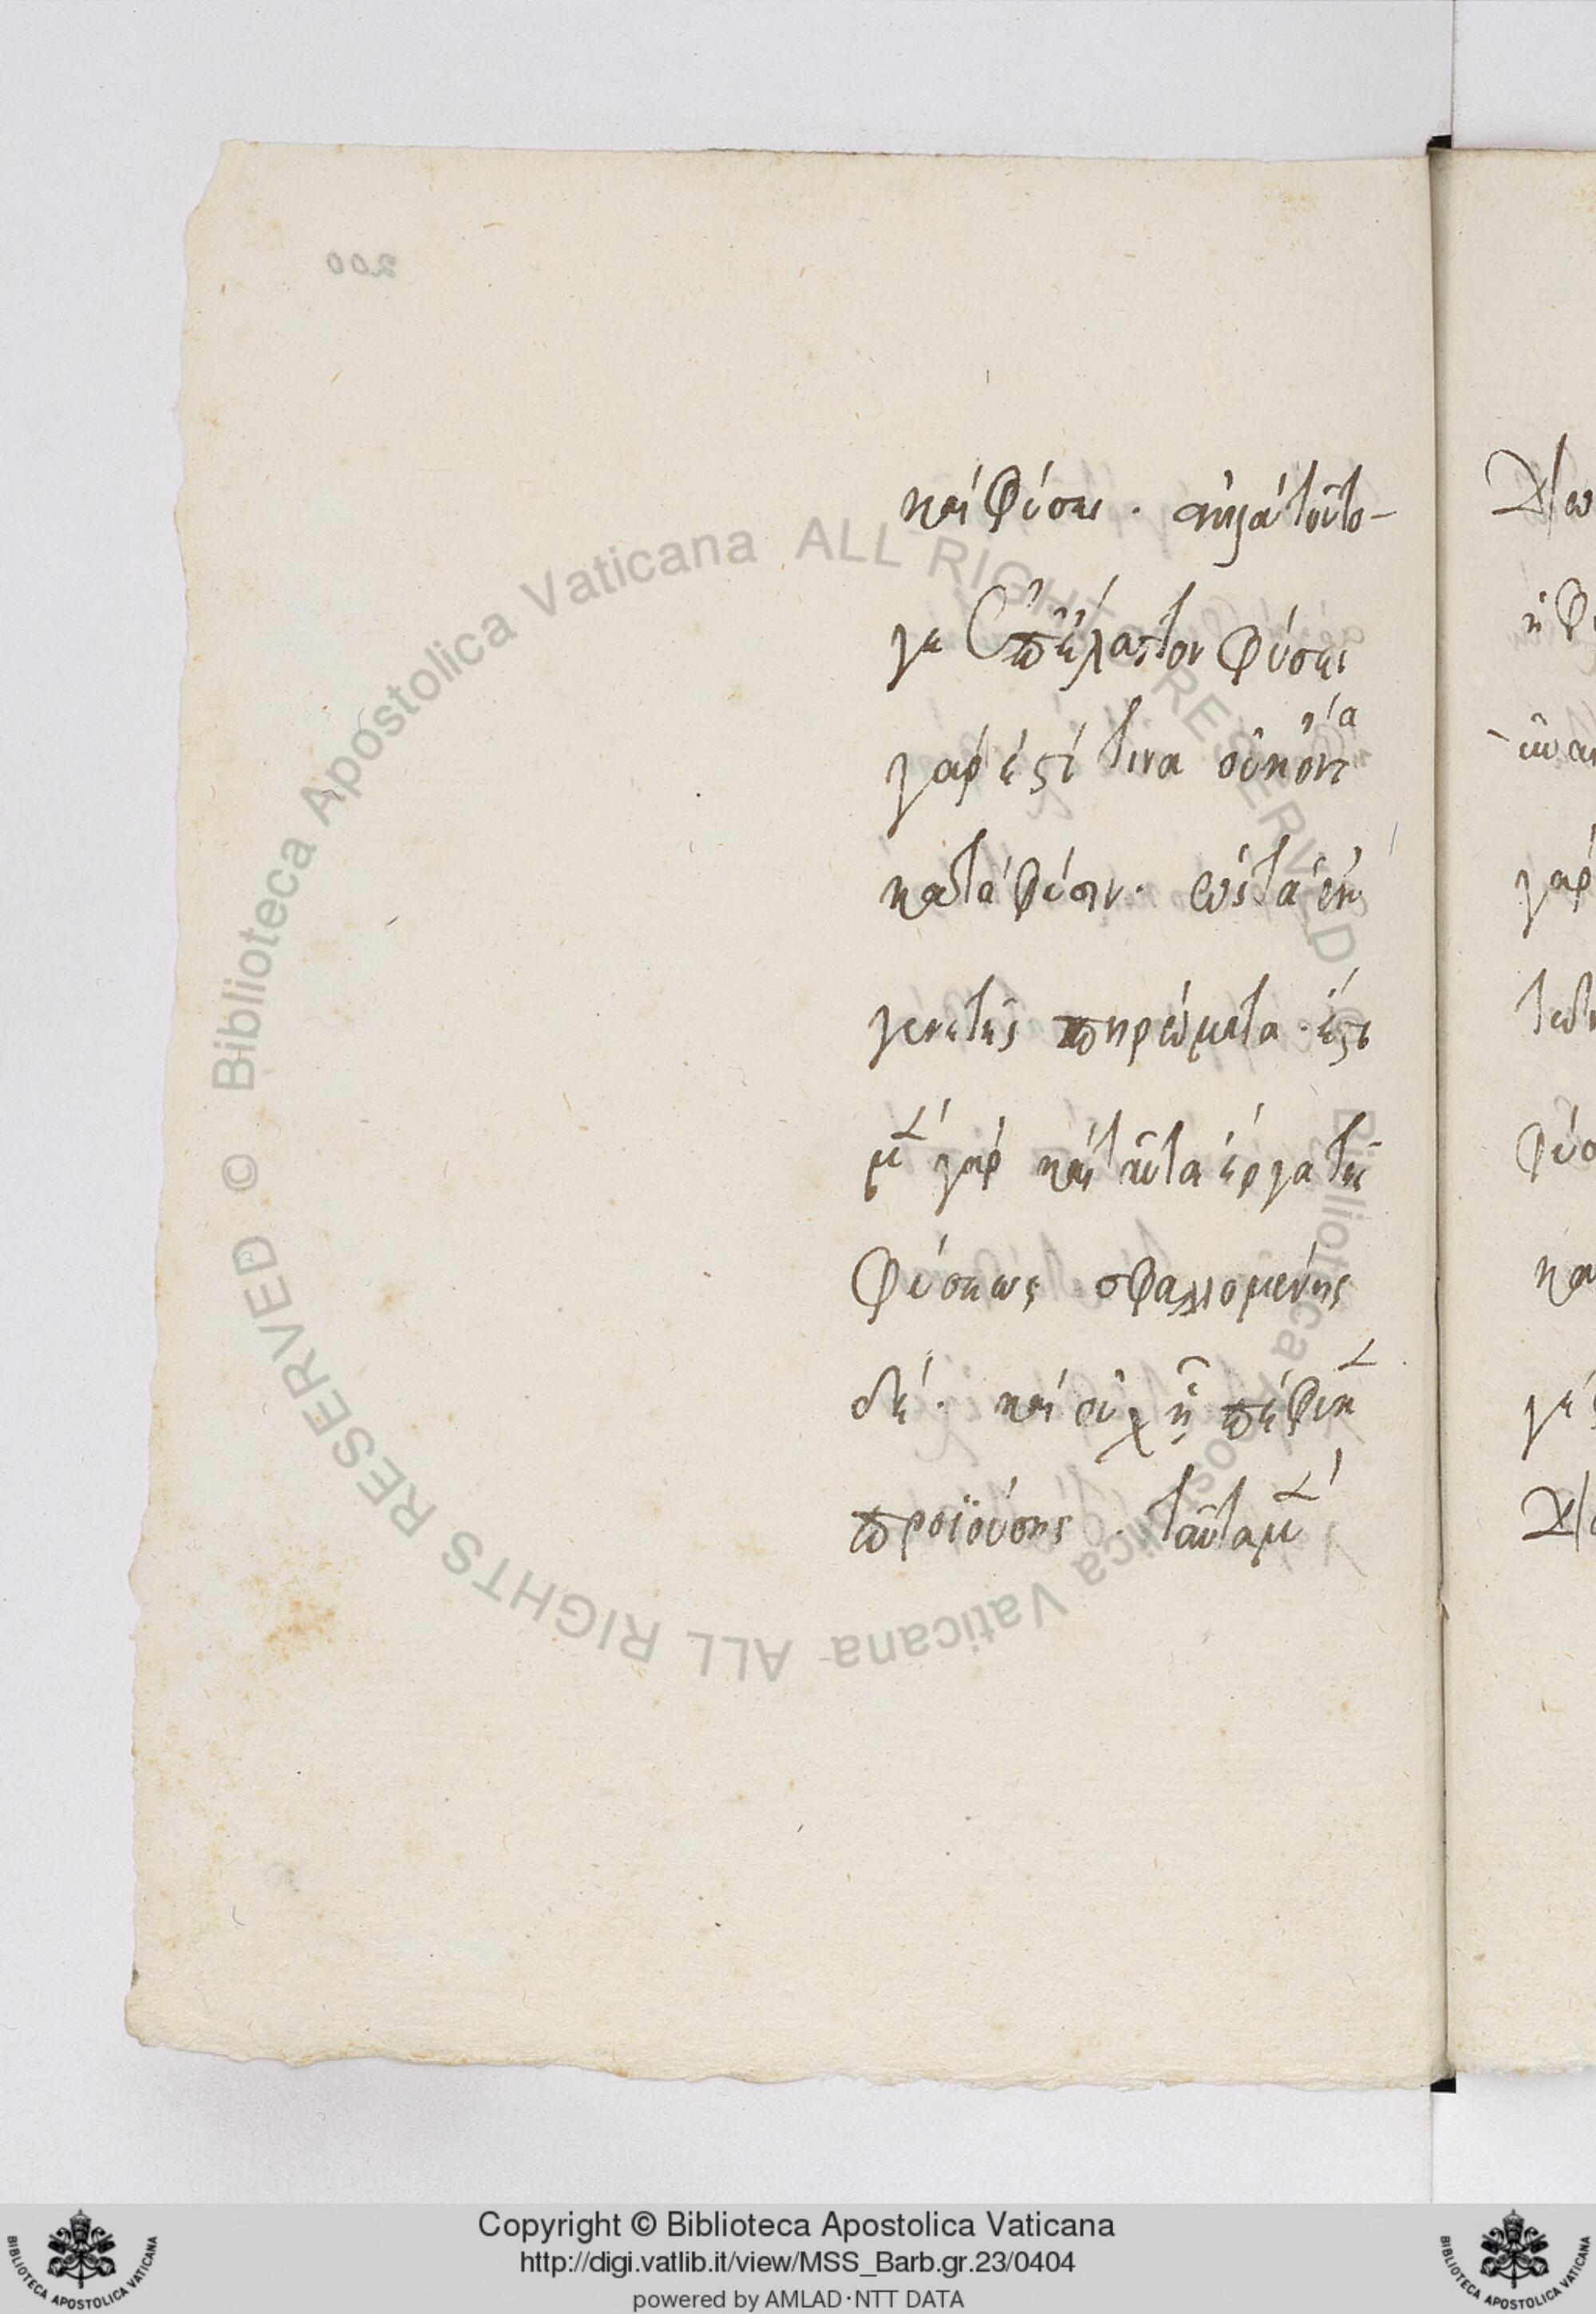 200
καὶ φύσει · ἀλλὰ τοῦτο-
γε ἐπ' ἔλαττον φύσει
γάρ ἐστί τινα οὐκ ὄντα
κατὰ φύσιν · ὡς τὰ ἐκ
γενετῆς πηρώματα · ἔστι
μὲν γὰρ καὶ ταῦτα ἔργα τῆς
φύσεως σφαλλομένης
δέ · καὶ οὐχ ᾗ πέφυκεν
προϊούσης · ταῦτα μὲν
γὰρ
κα
© Biblioteca Apostolica Vaticana ALL RIGHTS RESERVED
© Biblioteca Apostolica Vaticana ALL RIGHTS RESERVED
Copyright © Biblioteca Apostolica Vaticana
http://digi.vatlib.it/view/MSS_Barb.gr.23/0404
powered by AMLAD·NTT DATA
BIBLIOTECA APOSTOLICA VATICANA
BIBLIOTECA APOSTOLICA VATICANA